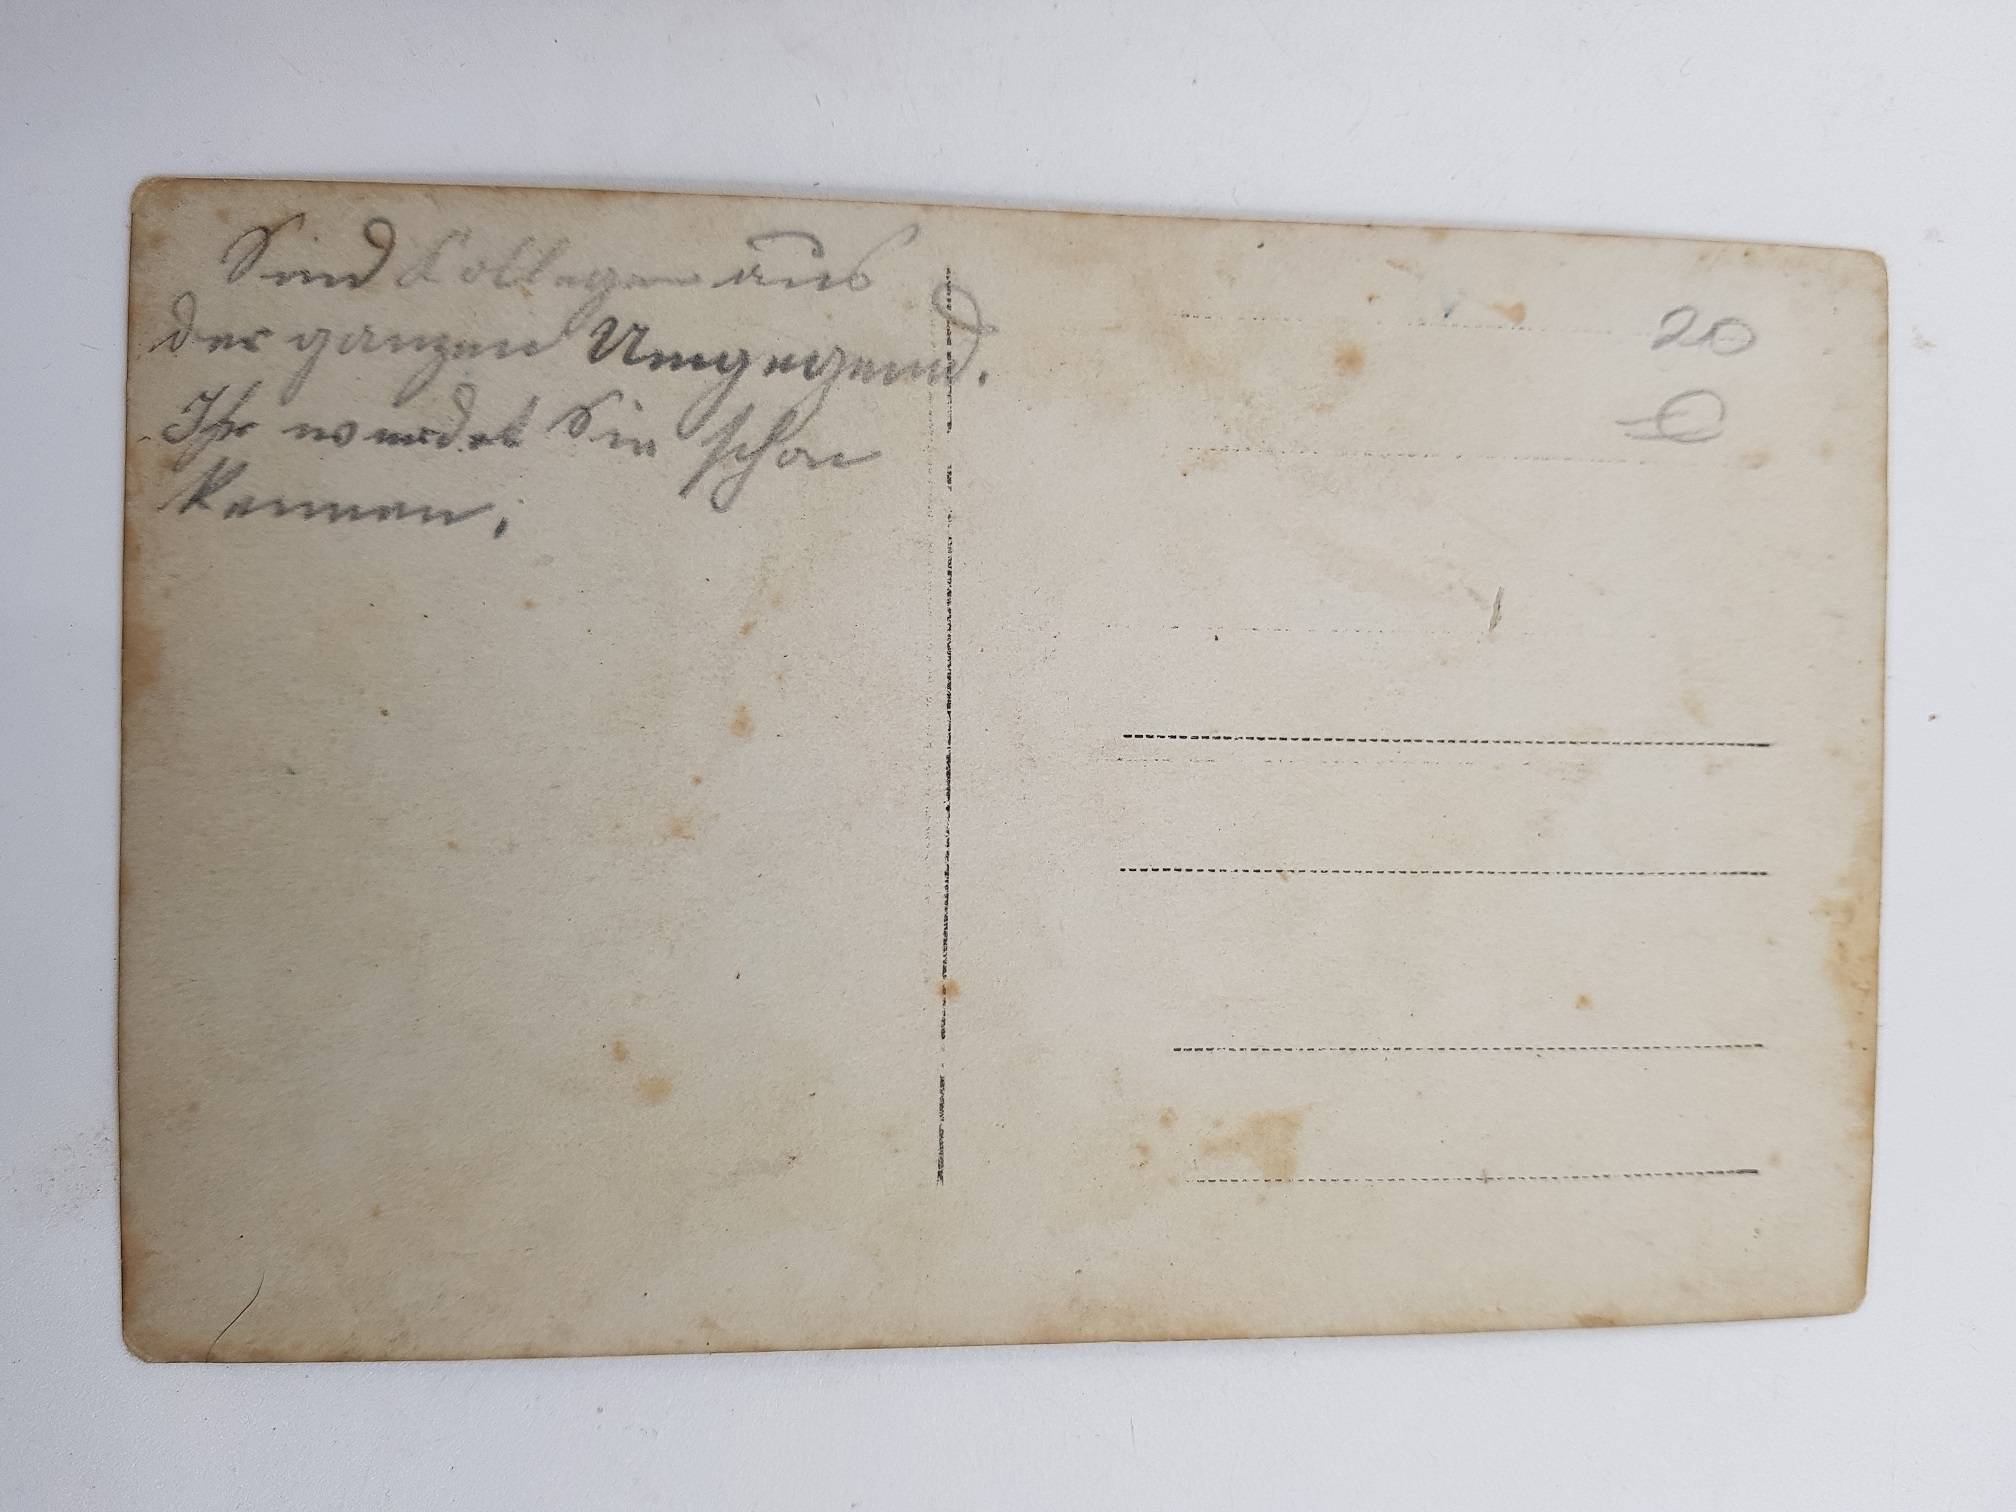 Sind Kollegen aus
der ganzen Umgegend.
Ihr werdet Sie schon
kennen.
20